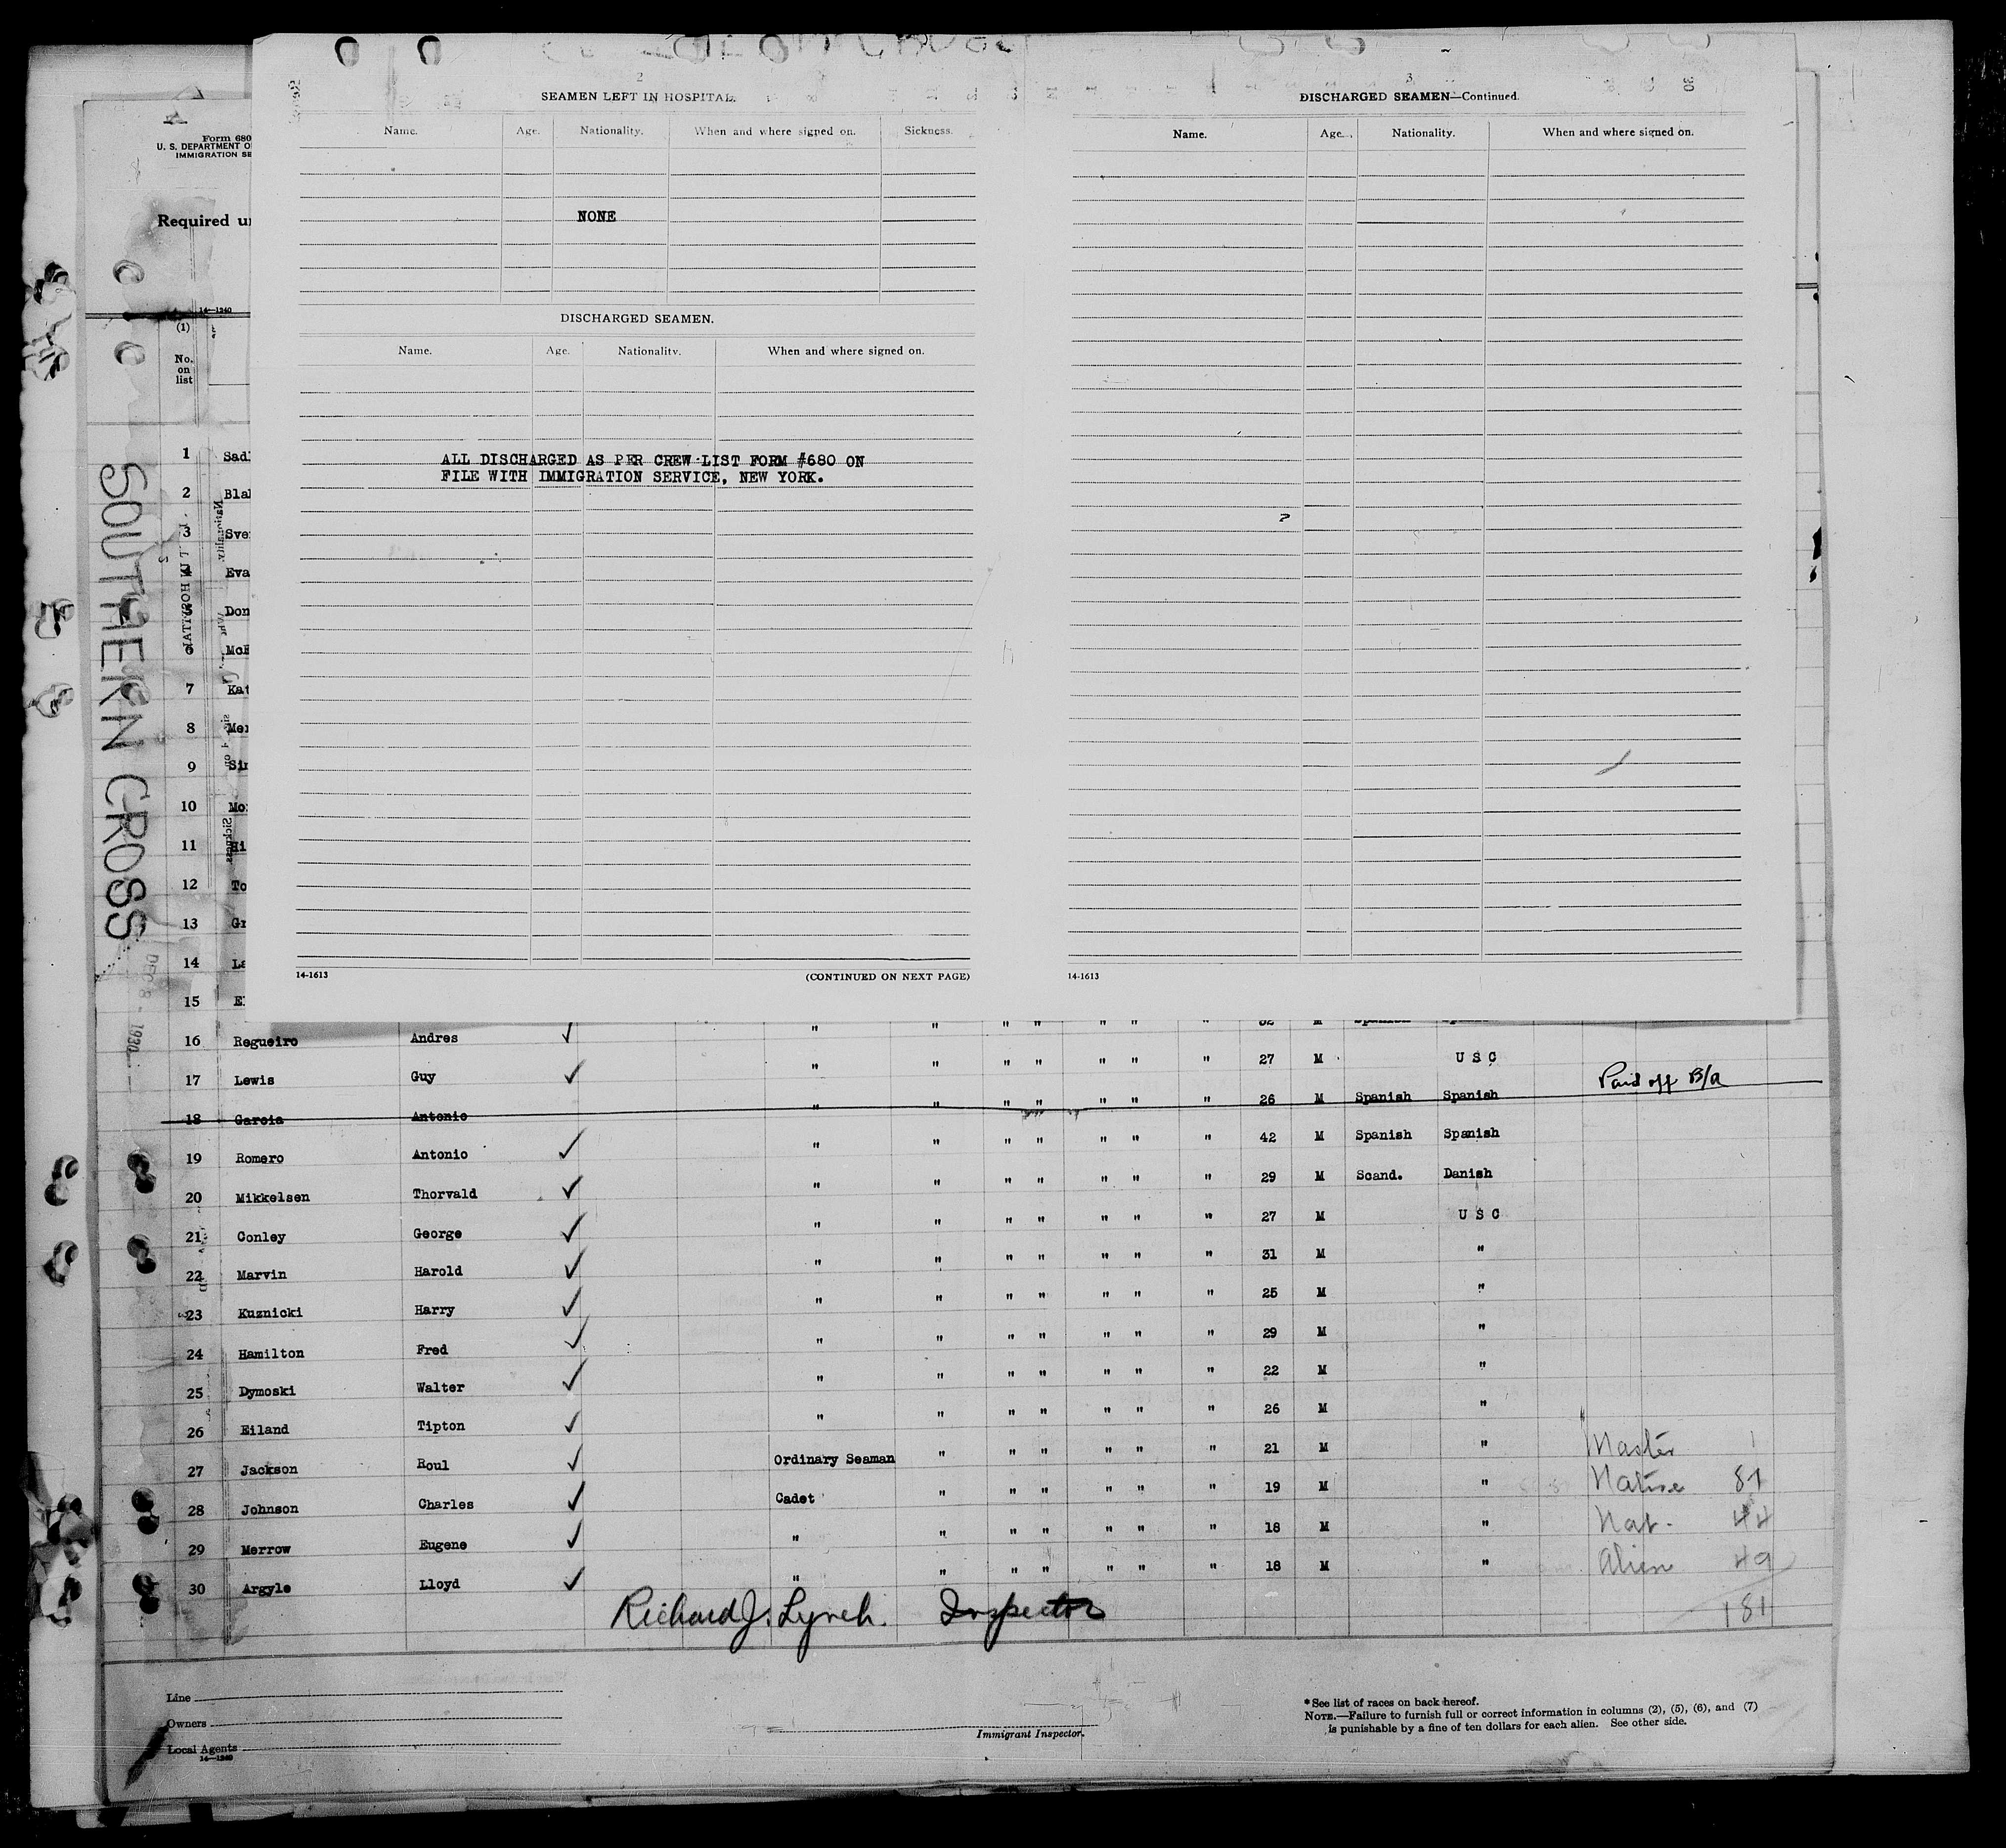 2
SEAMEN LEFT IN HOSPITAL.
Name. Age. Nationality. When and where signed on. Sickness.
NONE
DISCHARGED SEAMEN.
Name. Age. Nationality. When and where signed on.
ALL DISCHARGED AS PER CREW LIST FORM #680 ON
FILE WITH IMMIGRATION SERVICE, NEW YORK.
14-1613 (CONTINUED ON NEXT PAGE)
3
DISCHARGED SEAMEN—Continued.
Name. Age. Nationality. When and where signed on.
14-1613
Form 680
U. S. DEPARTMENT O
IMMIGRATION SE
Required u
14—1240
(1)
No.
on
list
SOUTHERN CROSS
DEC 8 - 1930
1 Sad
2 Bla
3 Sve
4 Eva
5 Don
6 McE
7 Kat
8 Mer
9 Sin
10 Mo
11 Hi
12 To
13 Gr
14 La
15 El
16 Regueiro Andres ✓ " " " " " " " 32 M Spanish
17 Lewis Guy ✓ " " " " " " " 27 M U S C
18 Garcia Antonio " " " " " " " 26 M Spanish Spanish Paid off B/A
19 Romero Antonio ✓ " " " " " " " 42 M Spanish Spanish
20 Mikkelsen Thorvald ✓ " " " " " " " 29 M Scand. Danish
21 Conley George ✓ " " " " " " " 27 M U S C
22 Marvin Harold ✓ " " " " " " " 31 M "
23 Kuznicki Harry ✓ " " " " " " " 25 M "
24 Hamilton Fred ✓ " " " " " " " 29 M "
25 Dymoski Walter ✓ " " " " " " " 22 M "
26 Eiland Tipton ✓ " " " " " " " 26 M "
27 Jackson Roul ✓ Ordinary Seaman " " " " " " 21 M " Master 1
28 Johnson Charles ✓ Cadet " " " " " " 19 M " Native 87
29 Merrow Eugene ✓ " " " " " " " 18 M " Nat. 44
30 Argyle Lloyd ✓ " " " " " " " 18 M " Alien 49
181
Richard J. Lynch. Inspector
Line
Owners
Local Agents
14—1240
Immigrant Inspector.
*See list of races on back hereof.
NOTE.—Failure to furnish full or correct information in columns (2), (5), (6), and (7)
is punishable by a fine of ten dollars for each alien. See other side.